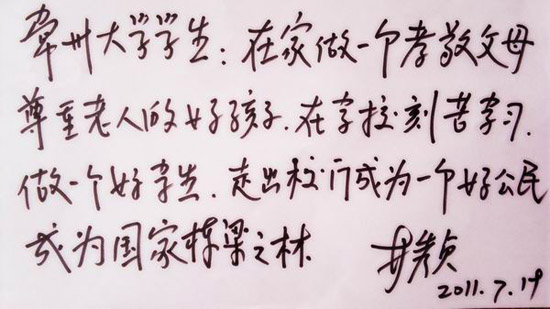 常州大学学生：在家做一个孝敬父母
尊重老人的好孩子.在学校刻苦学习.
做一个好学生.走出校门成为一个好公民
成为国家栋梁之林
2011.7.19